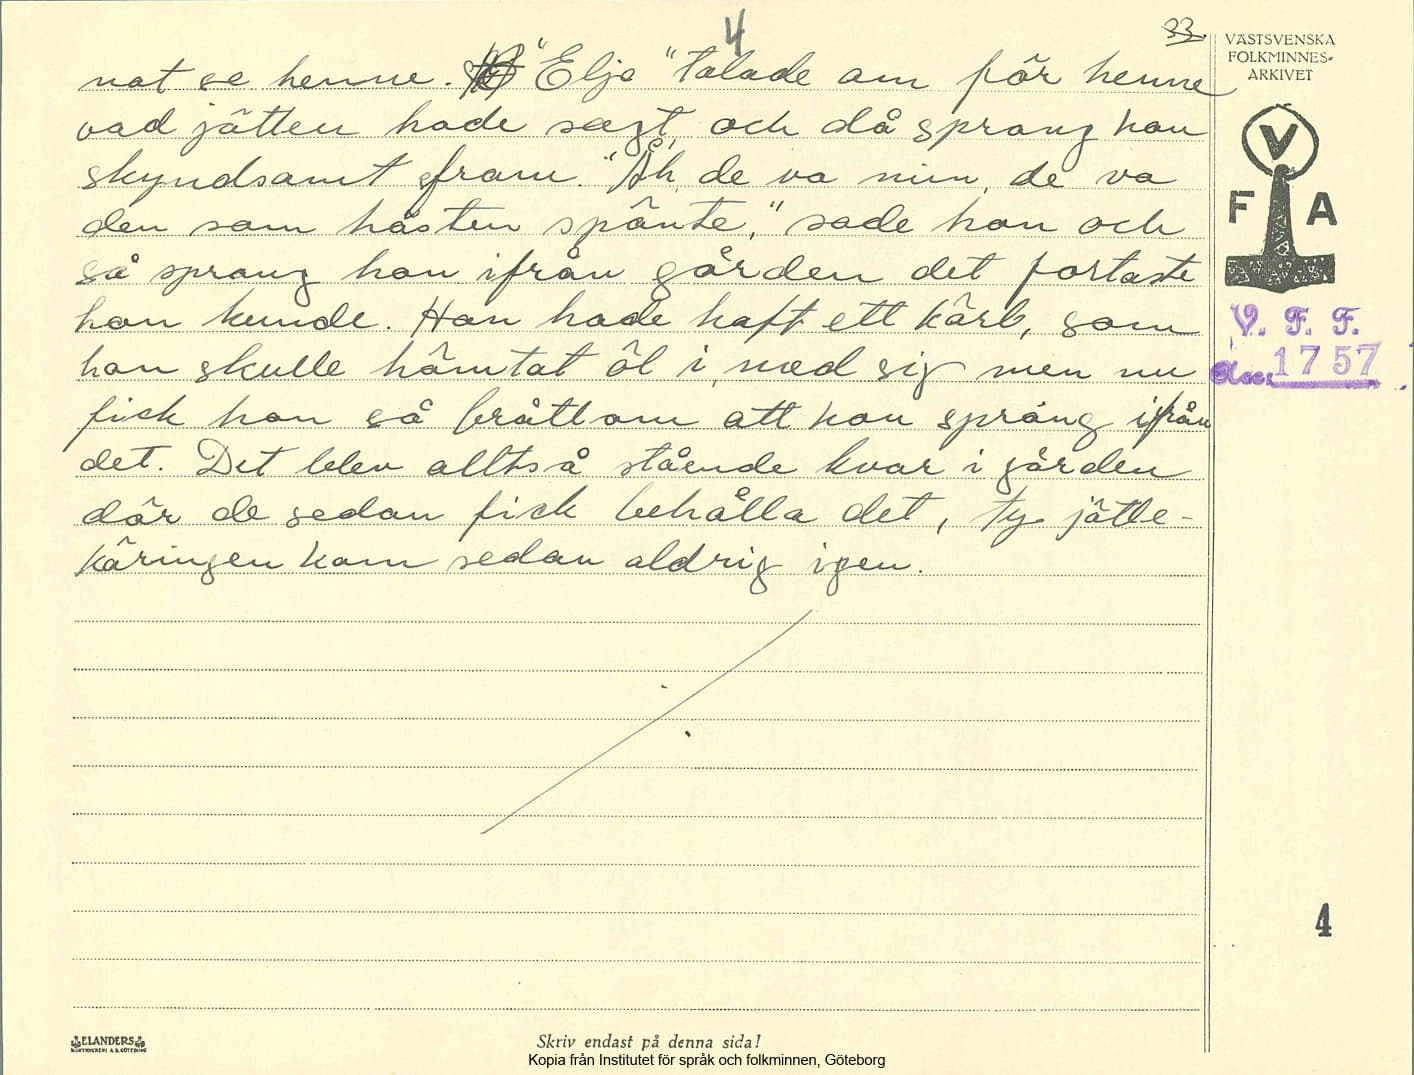 4
33.
nat se henne. "Elja" talade om för henne
vad jätten hade sagt, och då sprang hon
skyndsamt fram. "Åh, de va min, de va
den som hästen spänte," sade hon och
så sprang hon ifrån gården det fortaste
hon kunde. Hon hade haft ett kärl, som
hon skulle hämtat öl i, med sig men nu
fick hon så bråttom att hon sprang ifrån
det. Det blev alltså stående kvar i gården
där de sedan fick behålla det, ty jätte-
käringen kom sedan aldrig igen.
VÄSTSVENSKA
FOLKMINNES-
ARKIVET
V
F A
V. F. F.
Acc. 1757
4
ELANDERS
BOKTRYCKERI A.B. GÖTEBORG
Skriv endast på denna sida!
Kopia från Institutet för språk och folkminnen, Göteborg